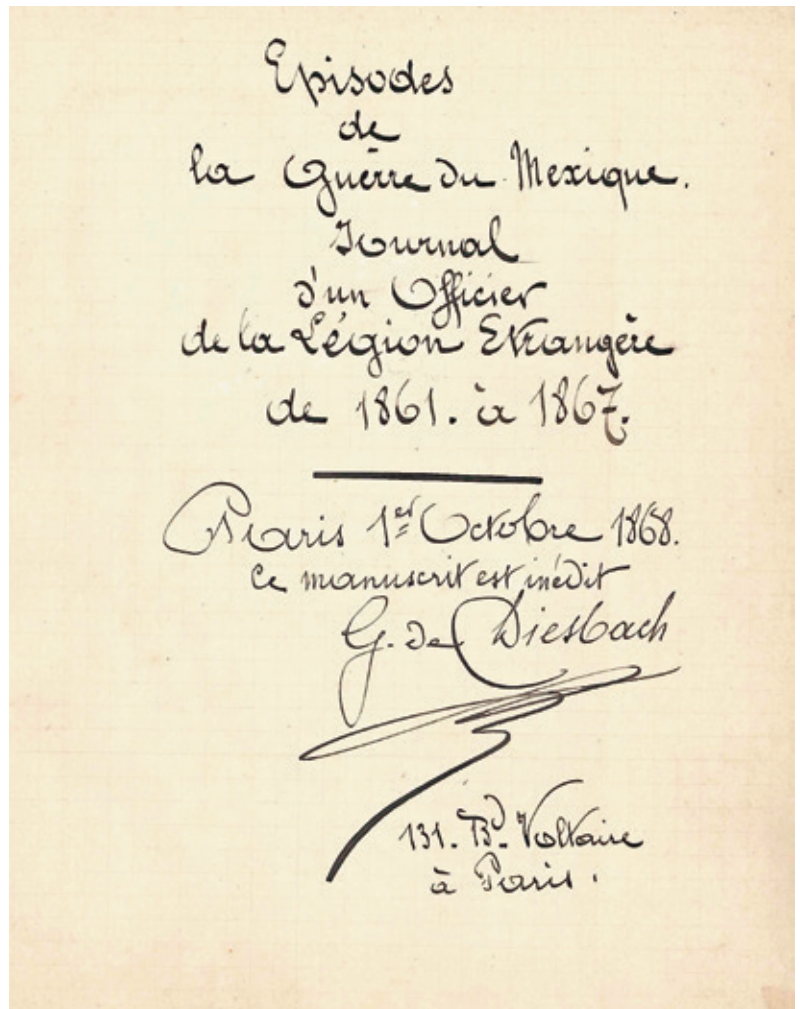 Episodes
de
la Guèrre du Mexique.
Journal
d'un Officier
de la Légion Etrangère
de 1861. à 1867.
Paris 1er Octobre 1868.
Ce manuscrit est inédit
G. de Diesbach
131. Bd. Voltaire
à Paris.